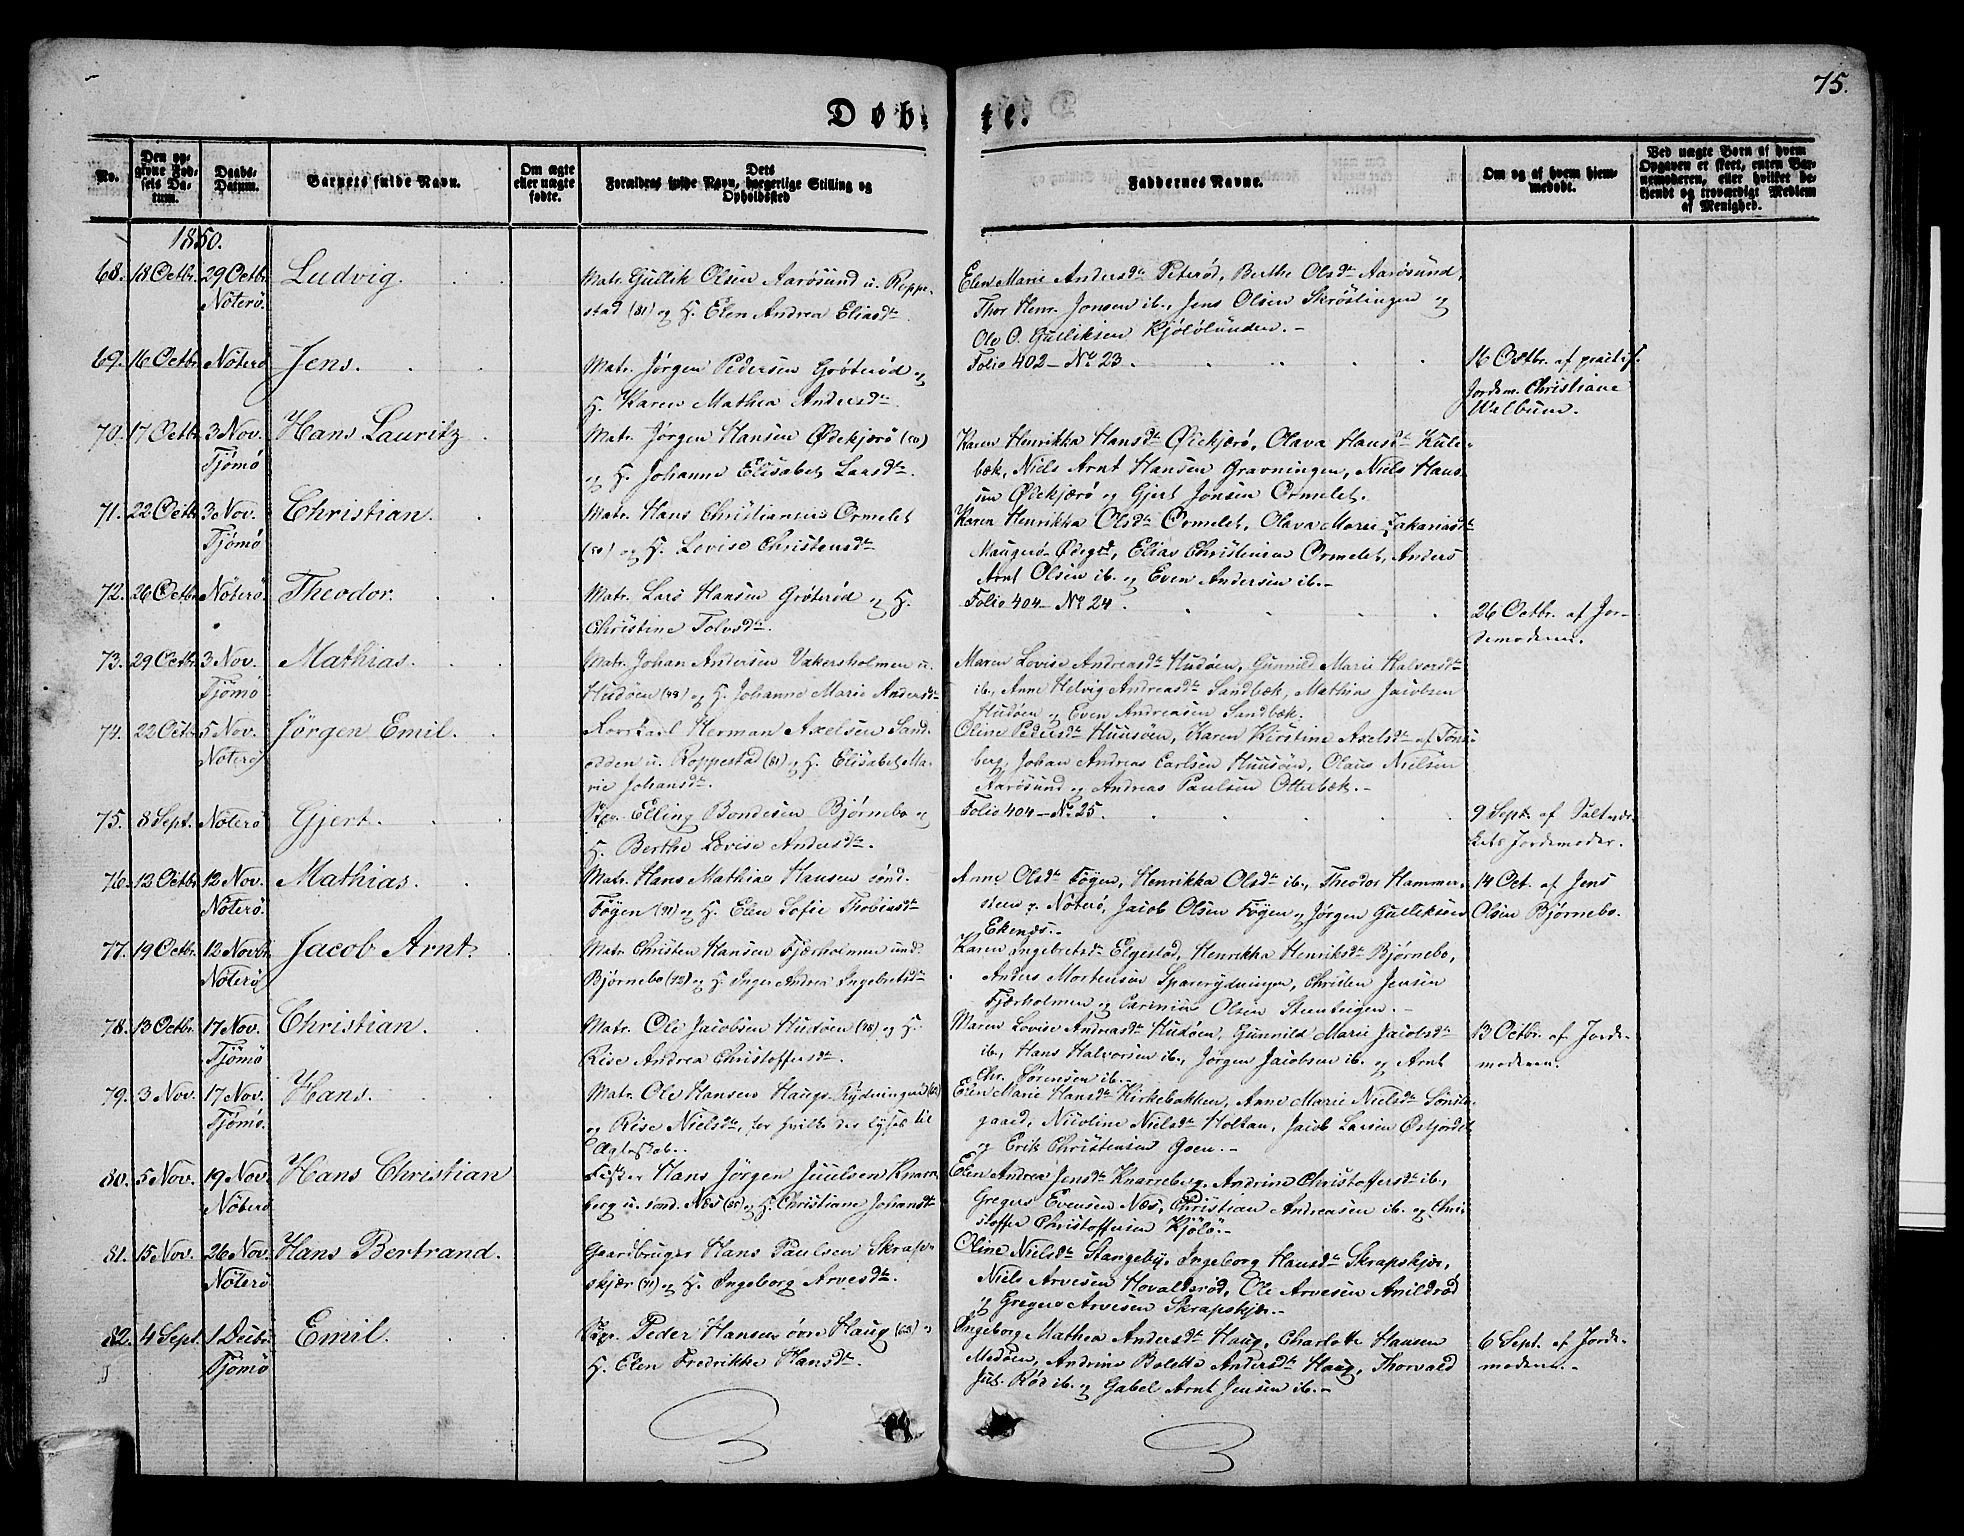 75.
Døbte.
No.
Den opgivne Fødsels Datum.
Daabs-Datum.
Barnets fulde Navn.
Om ægte eller uægte fødte.
Forældres fulde Navn, borgerlige Stilling og Opholdssted
Faddernes Navne.
Om og af hvem hjemmedøbt.
Ved uægte Børn af hvem Opgaven er skeet, enten Barnemoderen, eller hvilket bekjendt og troværdigt Medlem af Menighed.
1850.
68. 18 Octbr. 29 Octbr. Nöterö. Ludvig.
Matr. Gullik Olsen Aarösund u. Roppe-
stad (31) og H. Elen Andrea Eliasdtr.
Elen Marie Andersdtr Peteröd, Berthe Olsdtr Aarösund,
Thor Henr. Jonsen ib., Jens Olsen Skröslingen og
Ole O. Gulliksen Kjölölunden.
69. 16 Octbr. Nöterö Jens.
Matr. Jörgen Pedersen Gröteröd og
H. Karen Mathea Andersdtr.
Folio 402 - No 23.
16 Octbr. af practis.
Jordem. Christiane
Walbum.
70. 17 Octbr. 3 Nov. Tjömö Hans Lauritz
Matr. Jörgen Hansen Ødekjærö (50)
og H. Johanne Elisabet Larsdtr.
Karen Henrikka Hansdtr Ødekjærö, Olava Hansdtr Kule-
bæk, Niels Arnt Hansen Gravningen, Niels Han-
sen Ødekjærö og Gjert Jonsen Ormelet.
71. 22 Octbr. 3 Nov. Tjömö Christian.
Matr. Hans Christiansen Ormelet
(50) og H. Lovise Christensdtr
Karen Henrikka Olsdtr Ormelet, Olava Marie Zakariasdtr
Maugerö Ødegd, Elias Christensen Ormelet, Anders
Arnt Olsen ib. og Even Andersen ib.
72. 26 Octbr. Nöterö Theodor.
Matr. Lars Hansen Gröteröd og H.
Christine Tolvsdtr.
Folio 404 - No 24.
26 Octbr. af Jor-
demoderen.
73. 29 Octbr. 3 Nov. Tjömö Mathias.
Matr. Johan Andersen Vakersholmen u.
Hudöen (48) og H. Johanne Marie Andersdtr
Maren Lovise Andreasdtr Hudöen, Gunnild Marie Halvorsdtr
ib., Anne Helvig Andreasdtr Sandbæk, Mathias Jacobsen
Hudöen og Even Andreasen Sandbæk.
74. 22 Octbr. 5 Nov. Noterö Jørgen Emil.
Herman Axelsen Sand-
odden u. Roppestad (31) og H. Elisabet Ma-
rie Johansdtr.
Oline Pedersdtr Huusöen, Karen Kirstine Axelsdtr af Töns-
berg, Johan Andreas Carlsen Huusöen, Olaus Nielsen
Aarösund og Andreas Paulsen Otterbæk.
75. 8 Sept. Nöterö Gjert.
Elling Bondesen Björnebo og
H. Berthe Lovise Andersdtr.
Folio 404 - No 25.
9 Sept. af
Jordemoder.
76. 12 Octbr. 12 Nov. Nöterö. Mathias.
Matr. Hans Mathias Hansen sönd.
Föyen (41) og H. Elen Sofie Thobiasdtr
Anne Olsdtr Föyen, Henrikka Olsdtr ib., Theodor Hammer-
steen v. Noterö, Jacob Olsen Föyen og Jörgen Gulliksen
Ekenæs.
14 Oct. af Jens
Olsen Björnebo.
77. 19 Octbr. 12 Novbr. Nöterö Jacob Arnt.
Matr. Christen Hansen Fjærholmen und.
Björnebo (42) og H. Inger Andrea Ingebretsdtr
Karen Ingebretsdtr Elgestad, Henrikka Henriksdtr Björnebo,
Anders Mortensen Sparrydningen, Christen Jensen
Fjærholmen og Olsen Steensteigen.
78. 13 Octbr. 17 Nov. Tjömö Christian.
Matr. Ole Jacobsen Hudöen (48) og H.
Rise Andrea Christoffersdtr.
Maren Lovise Andreasdtr Hudöen, Gunnild Marie Jacobsdtr
ib., Hans Halvorsen ib., Jörgen Jacobsen ib. og Arnt
Chr. Sörensen ib.
13 Octbr. af Jorde-
moderen.
79. 3 Nov. 17 Nov. Tjömö. Hans.
Matr. Ole Hansen Haugs-Rydningen
og Rise Nielsdtr, for hvilke der lyses til
Ægteskab.
Elen Marie Hansdtr Kirkebakken, Anne Marie Nielsdtr Sönste-
gaard, Nicoline Nielsdtr Holtan, Jacob Larsen
og Erik Christensen Goen.
80. 5 Nov. 19 Nov. Nöterö Hans Christian
Fisker Hans Jörgen Juulsen Knarre-
berg u. sönd. Næs og H. Christiane Johansdtr
Elen Andrea Jensdtr Knarreberg, Andrine Christoffersdtr ib.,
Gregers Evensen Næs, Christian Andreasen ib. og Chri-
stoffer Christoffersen Kjölö.
81. 15 Nov. 26 Nov. Nöterö Hans Bertrand.
Gaardbruger Hans Paulsen Skraps-
kjær (71) og H. Ingeborg Arvesdtr.
Oline Nielsdtr Stangeby, Ingeborg Hansdtr Skrapskjær,
Niels Arvesen Hovaldsröd, Ole Arvesen Arildröd
og Gregers Arvesen Skrapskjær.
82. 4 Sept. 1 Decbr. Tjömö Emil.
Peder Hansen övre Haug og
H. Elen Fredrikke Hansdtr.
Ingeborg Mathea Andersdtr Haug, Charlotte Hansen
Medöen, Andrine Bolette Andersdtr Haug, Thorvald
Jul. Röd ib. og Gabel Arnt Jensen ib.
6 Sept. af Jorde-
moderen.